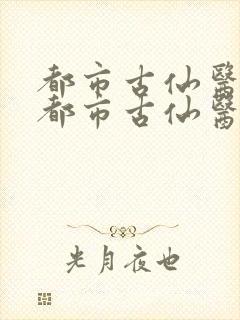 都市古仙醫
都市古仙醫
光月夜也